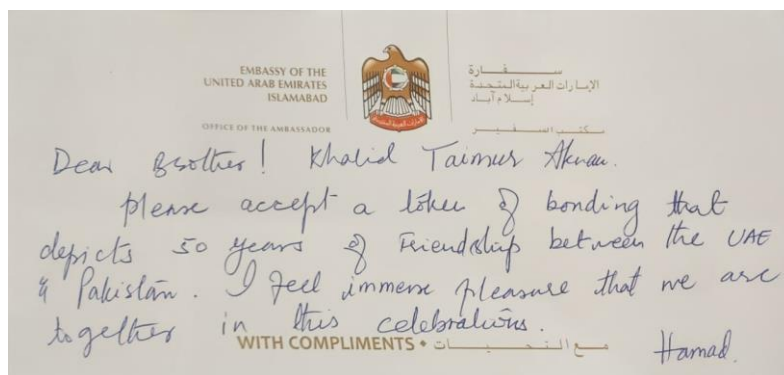 EMBASSY OF THE
UNITED ARAB EMIRATES
ISLAMABAD
OFFICE OF THE AMBASSADOR
سفارة
الإمارات العربية المتحدة
إسلام آباد
مكتب السفير
Dear Brother! Khalid Taimur Akram.
please accept a token of bonding that
depicts 50 years of Friendship between the UAE
& Pakistan. I feel immense pleasure that we are
together in this celebrations.
WITH COMPLIMENTS • مع التحيات
Hamad.